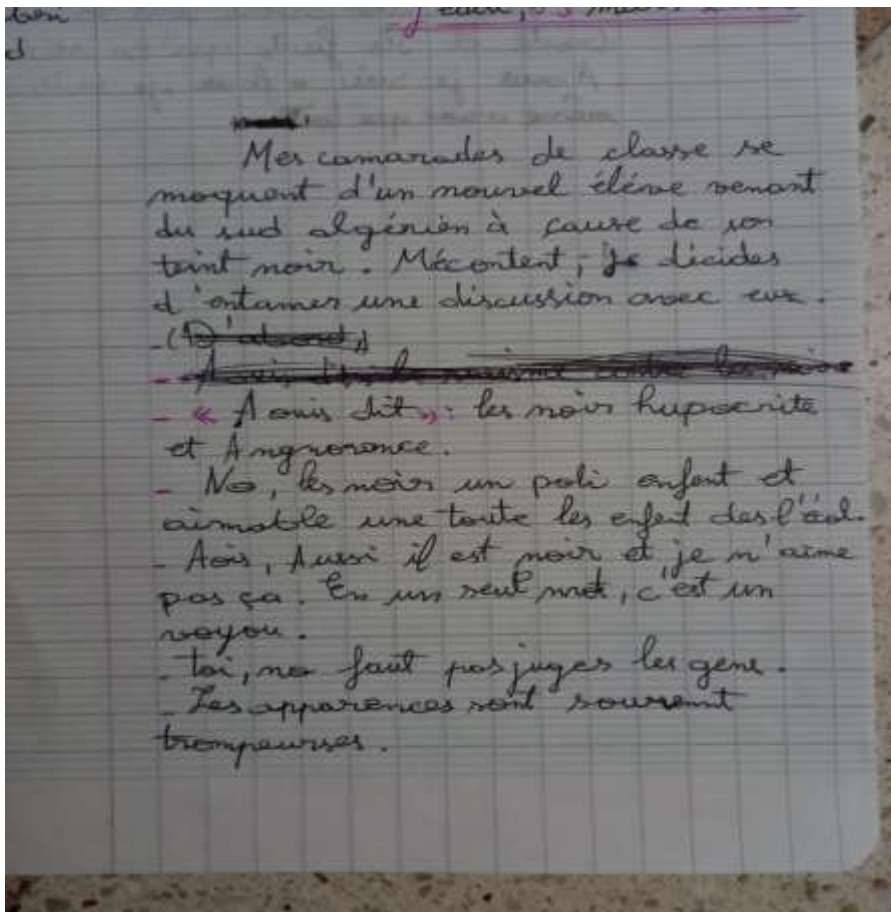 Mes camarades de classe se
moquent d'un nouvel élève venant
du sud algérien à cause de son
teint noir. Mécontent, je décides
d'entamer une discussion avec eux.
-(D'abord,)
- « Aouis dit »: les noir hupocrite
et Angnorance.
- No, les noir un poli enfant et
aimatble une toute les enfent des l'écol.
- Aois, Aussi il est noir et je n'aime
pas ça. En un seul mot, c'est un
voyou.
- toi, no faut pas juges les gene.
- Les apparences sont souvemt
trompeurses.